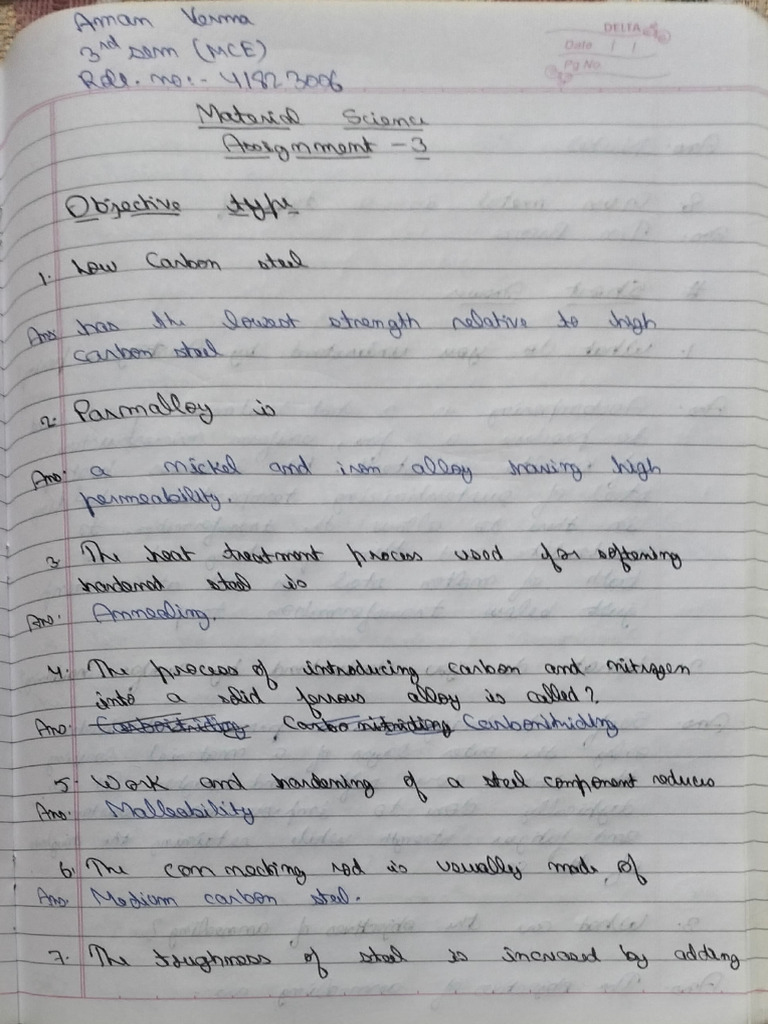 Aman Verma
3rd sem (MCE)
Roll. no:- 41823006
DELTA
Date / /
Pg No.
Material Science
Assignment - 3
Objective type
1. Low Carbon steel
Ans has the lowest strength relative to high
carbon steel
2. Parmalloy is
Ans: a nickel and iron alloy having high
permeability.
3. The heat treatment process used for softening
hardened steel is
Ans: Annealing.
4. The process of introducing carbon and nitrogen
into a solid ferrous alloy is called?
Ans:
5. Work and hardening of a steel component reduces
Ans: Malleability
6. The connecting rod is usually made of
Ans. Medium carbon steel.
7. The toughness of steel is increased by adding